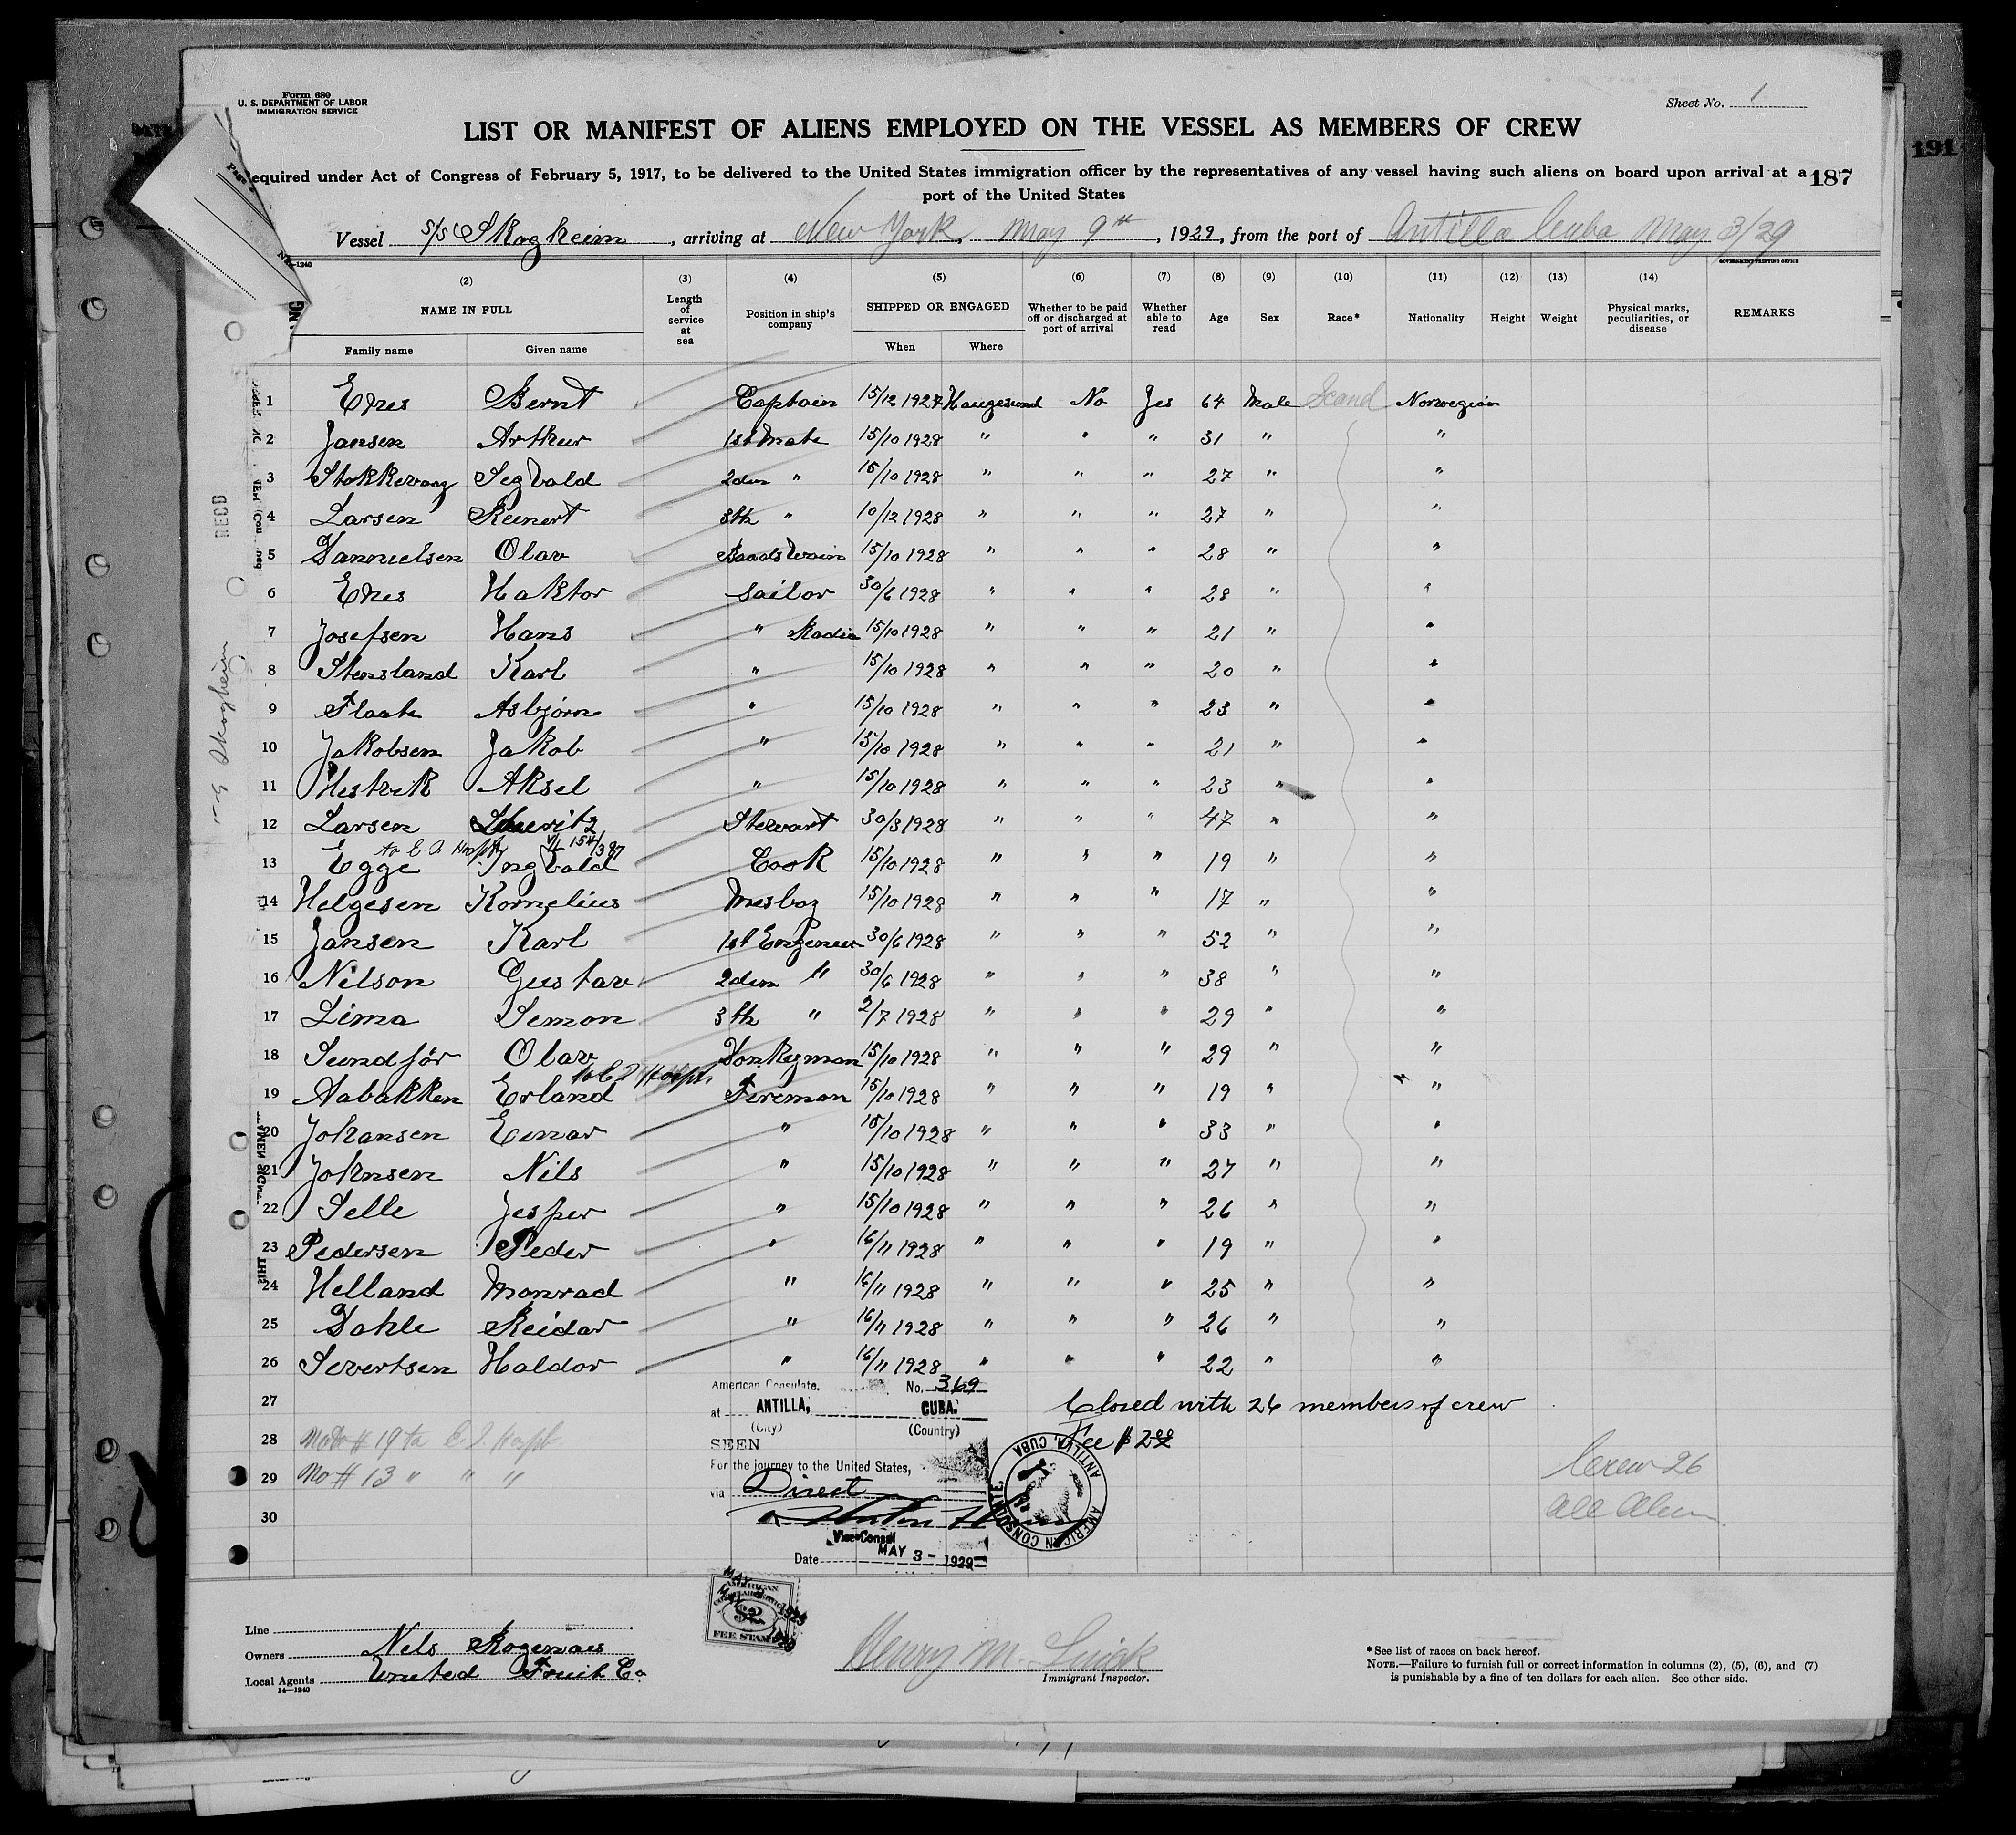 Form 680
U. S. DEPARTMENT OF LABOR
IMMIGRATION SERVICE
Sheet No. 1
LIST OR MANIFEST OF ALIENS EMPLOYED ON THE VESSEL AS MEMBERS OF CREW
191
equired under Act of Congress of February 5, 1917, to be delivered to the United States immigration officer by the representatives of any vessel having such aliens on board upon arrival at a
187
port of the United States
Vessel S/S Skogheim, arriving at New York, May 9th, 1929, from the port of Antilla Cuba May 3/29
GOVERNMENT PRINTING OFFICE
(2) (3) (4) (5) (6) (7) (8) (9) (10) (11) (12) (13) (14)
NAME IN FULL Length of service at sea Position in ship's company SHIPPED OR ENGAGED Whether to be paid off or discharged at port of arrival Whether able to read Age Sex Race* Nationality Height Weight Physical marks, peculiarities, or disease REMARKS
Family name Given name When Where
1 Enes Bernt Captain 15/12 1927 Haugesund No Yes 64 Male Scand Norwegian
2 Jansen Arthur 1st Mate 15/10 1928 " " " 31 " "
3 Stokkevaag Segvald 2den " 15/10 1928 " " " 27 " "
4 Larsen Reinert 3th " 10/12 1928 " " " 27 " "
5 Dannielsen Olav Baadswain 15/10 1928 " " " 28 " "
6 Enes Haktor Sailor 30/6 1928 " " " 28 " "
7 Josefsen Hans " Radio 15/10 1928 " " " 21 " "
8 Stensland Karl " 15/10 1928 " " " 20 " "
9 Flaate Asbjørn " 15/10 1928 " " " 23 " "
10 Jakobsen Jakob " 15/10 1928 " " " 21 " "
11 Hestvik Aksel " 15/10 1928 " " " 23 " "
12 Larsen Stewart 30/3 1928 " " " 47 " "
to E. I. Hospt
13 Egge Ingvald Cook 15/10 1928 " " " 19 " "
14 Helgesen Kornelius Mesboy 15/10 1928 " " " 17 " "
15 Jansen Karl 1st Engeneer 30/6 1928 " " " 52 " "
16 Nilson Gustav 2den " 30/6 1928 " " " 38 " "
17 Lima Semon 3th " 2/7 1928 " " " 29 " "
18 Sundför Olav Donkeyman 15/10 1928 " " " 29 " "
to E. I. Hospt.
19 Aabakken Erland Fireman 15/10 1928 " " " 19 " "
20 Johansen Einar " 15/10 1928 " " " 33 " "
21 Johnsen Nils " 15/10 1928 " " " 27 " "
22 Selle Jesper " 15/10 1928 " " " 26 " "
23 Pedersen Peder " 16/11 1928 " " " 19 " "
24 Helland Monrad " 16/11 1928 " " " 25 " "
25 Dahle Reidar " 16/11 1928 " " " 26 " "
26 Severtsen Haldor " 16/11 1928 " " " 22 " "
American Consulate. No. 369
27 at ANTILLA, CUBA. Closed with 26 members of crew
(City) (Country)
28 # 19 to E. I. Hospt Fee $ 2.00
SEEN
For the journey to the United States,
29 No # 13 " " " Crew 26
via Direct
30 All Alien
Vice Consul
Date MAY 3 - 1929
AMERICAN CONSULATE ANTILLA, CUBA
RECD
Skogheim
AMERICAN
$2
FEE STAMP
Line
Owners Nels Rogenaes
Local Agents United Fruit Co
14—1240
Henry M.
Immigrant Inspector.
*See list of races on back hereof.
NOTE.—Failure to furnish full or correct information in columns (2), (5), (6), and (7)
is punishable by a fine of ten dollars for each alien. See other side.